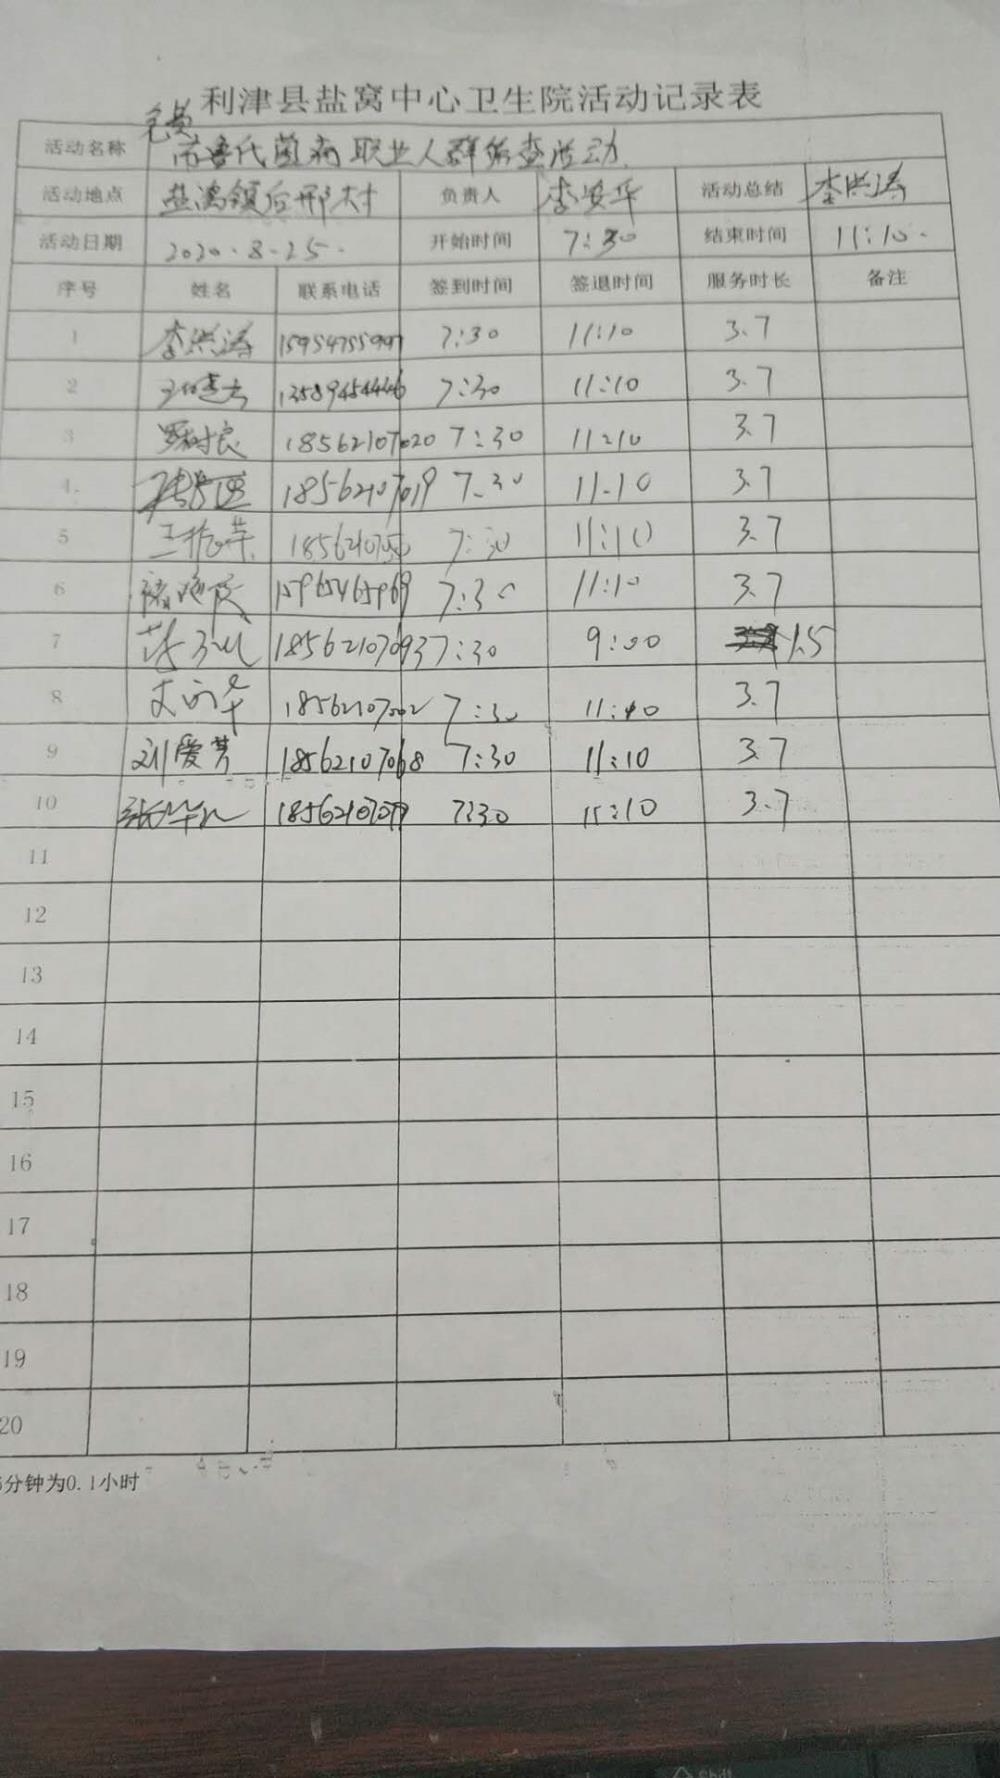 利津县盐窝中心卫生院活动记录表
免费
活动名称 布鲁氏菌病职业人群筛查活动
活动地点 盐窝镇后邢村 负责人 李安华 活动总结 李洪涛
活动日期 2020.8.25. 开始时间 7:30 结束时间 11:10.
序号 姓名 联系电话 签到时间 签退时间 服务时长 备注
1 李洪涛 7:30 11:10 3.7
2 7:30 11:10 3.7
3 18562107020 7:30 11:10 3.7
4 18562107019 7:30 11:10 3.7
5 7:30 11:10 3.7
6 15965465969 7:30 11:10 3.7
7 18562107093 7:30 9:00 1.5
8 18562107002 7:30 11:10 3.7
9 刘爱芳 18562107068 7:30 11:10 3.7
10 7:30 11:10 3.7
11
12
13
14
15
16
17
18
19
20
分钟为0.1小时
Shift